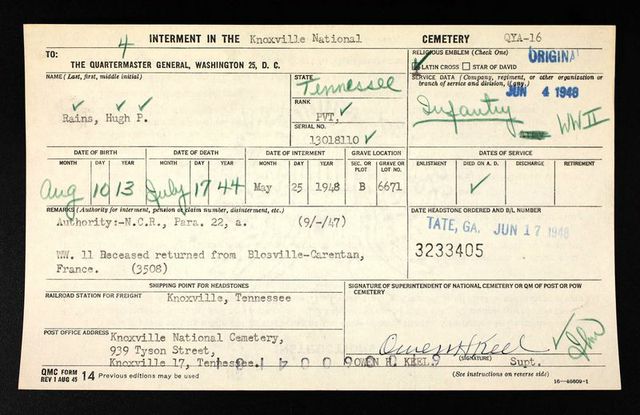 4 INTERMENT IN THE Knoxville National CEMETERY QYA-16
TO:
THE QUARTERMASTER GENERAL, WASHINGTON 25, D. C.
RELIGIOUS EMBLEM (Check One)
LATIN CROSS STAR OF DAVID
ORIGINAL
NAME (Last, first, middle initial)
Rains, Hugh P.
STATE
Tennessee
RANK
PVT,
SERIAL NO.
13018110
SERVICE DATA (Company, regiment, or other organization or branch of service and division, if any.)
JUN 4 1948
Infantry WW II
DATE OF BIRTH DATE OF DEATH DATE OF INTERMENT GRAVE LOCATION DATES OF SERVICE
MONTH DAY YEAR MONTH DAY YEAR MONTH DAY YEAR SEC. OR PLOT GRAVE OR LOT NO. ENLISTMENT DIED ON A. D. DISCHARGE RETIREMENT
Aug 10 13 July 17 44 May 25 1948 B 6671
REMARKS (Authority for interment, pension or claim number, disinterment, etc.)
Authority:-N.C.R., Para. 22, a. (9/-/47)
WW. 11 Beceased returned from Blosville-Carentan,
France. (3508)
DATE HEADSTONE ORDERED AND B/L NUMBER
TATE, GA. JUN 17 1948
3233405
SHIPPING POINT FOR HEADSTONES
RAILROAD STATION FOR FREIGHT
Knoxville, Tennessee
POST OFFICE ADDRESS
Knoxville National Cemetery,
939 Tyson Street,
Knoxville 17, Tennessee.
SIGNATURE OF SUPERINTENDENT OF NATIONAL CEMETERY OR QM OF POST OR POW CEMETERY
Owen H Keel
OWEN H. KEEL. Supt.
(SIGNATURE)
QMC FORM REV 1 AUG 45 14 Previous editions may be used
(See instructions on reverse side)
16—46609-1